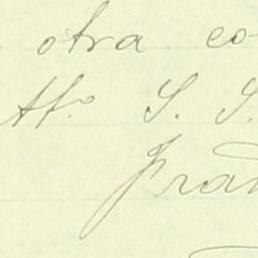 otra co-
Att.º S. S.
Fran